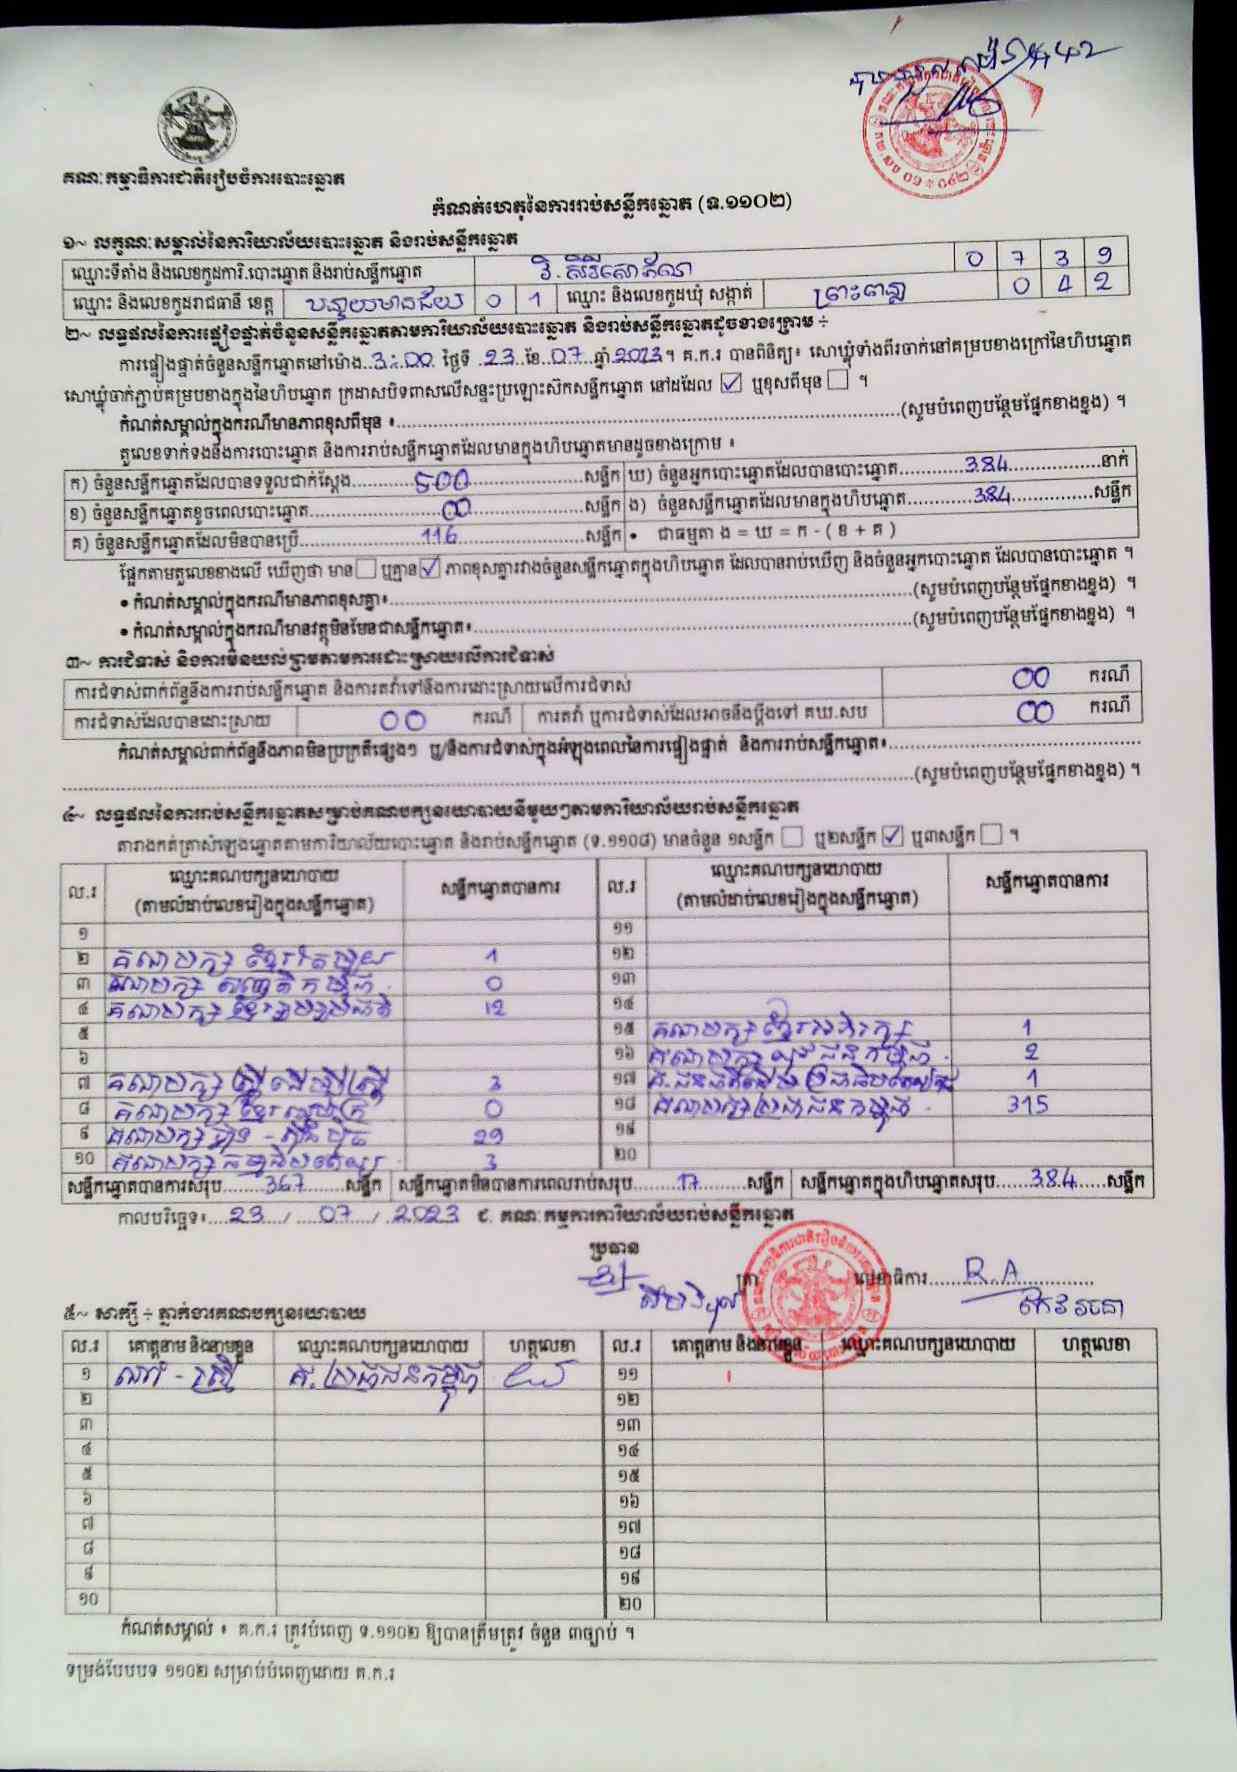 គណៈកម្មាធិការជាតិរៀបចំការបោះឆ្នោត
កំណត់ហេតុនៃការរាប់សន្លឹកឆ្នោត (ទ.១១០២)
១~ លក្ខណៈសម្គាល់នៃការិយាល័យបោះឆ្នោត និងរាប់សន្លឹកឆ្នោត
ឈ្មោះទីតាំង និងលេខកូដការិ.បោះឆ្នោត និងរាប់សន្លឹកឆ្នោត វិ.សិរីសោភ័ណ 0 7 3 9
ឈ្មោះ និងលេខកូដរាជធានី ខេត្ត បន្ទាយមានជ័យ 0 1 ឈ្មោះ និងលេខកូដឃុំ សង្កាត់ ព្រះពន្លា 0 4 2
២~ លទ្ធផលនៃការផ្ទៀងផ្ទាត់ចំនួនសន្លឹកឆ្នោតតាមការិយាល័យបោះឆ្នោត និងរាប់សន្លឹកឆ្នោតដូចខាងក្រោម ÷
ការផ្ទៀងផ្ទាត់ចំនួនសន្លឹកឆ្នោតនៅម៉ោង 3:00 ថ្ងៃទី 23 ខែ 07 ឆ្នាំ 2023។ គ.ក.រ បានពិនិត្យ៖ សោឃ្នុំទាំងពីរចាក់នៅគម្របខាងក្រៅនៃហិបឆ្នោត
សោឃ្នុំចាក់ភ្ជាប់គម្របខាងក្នុងនៃហិបឆ្នោត ក្រដាសបិទពាសលើសន្ទះប្រឡោះស៊កសន្លឹកឆ្នោត នៅដដែល ☑ ឬខុសពីមុន ☐ ។
កំណត់សម្គាល់ក្នុងករណីមានភាពខុសពីមុន ៖ (សូមបំពេញបន្ថែមផ្នែកខាងខ្នង) ។
តួលេខទាក់ទងនឹងការបោះឆ្នោត និងការរាប់សន្លឹកឆ្នោតដែលមានក្នុងហិបឆ្នោតមានដូចខាងក្រោម ៖
ក) ចំនួនសន្លឹកឆ្នោតដែលបានទទួលជាក់ស្តែង 500 សន្លឹក ឃ) ចំនួនអ្នកបោះឆ្នោតដែលបានបោះឆ្នោត 384 នាក់
ខ) ចំនួនសន្លឹកឆ្នោតខូចពេលបោះឆ្នោត 00 សន្លឹក ង) ចំនួនសន្លឹកឆ្នោតដែលមានក្នុងហិបឆ្នោត 384 សន្លឹក
គ) ចំនួនសន្លឹកឆ្នោតដែលមិនបានប្រើ 116 សន្លឹក • ជាធម្មតា ង = ឃ = ក - ( ខ + គ )
ផ្អែកតាមតួលេខខាងលើ ឃើញថា មាន ☐ ឬគ្មាន ☑ ភាពខុសគ្នារវាងចំនួនសន្លឹកឆ្នោតក្នុងហិបឆ្នោត ដែលបានរាប់ឃើញ និងចំនួនអ្នកបោះឆ្នោត ដែលបានបោះឆ្នោត ។
• កំណត់សម្គាល់ក្នុងករណីមានភាពខុសគ្នា៖ (សូមបំពេញបន្ថែមផ្នែកខាងខ្នង) ។
• កំណត់សម្គាល់ក្នុងករណីមានវត្ថុមិនមែនជាសន្លឹកឆ្នោត៖ (សូមបំពេញបន្ថែមផ្នែកខាងខ្នង) ។
៣~ ការជំទាស់ និងការមិនយល់ព្រមតាមការដោះស្រាយលើការជំទាស់
ការជំទាស់ពាក់ព័ន្ធនឹងការរាប់សន្លឹកឆ្នោត និងការតវ៉ាទៅនឹងការដោះស្រាយលើការជំទាស់ 00 ករណី
ការជំទាស់ដែលបានដោះស្រាយ 00 ករណី ការតវ៉ា ឬការជំទាស់ដែលអាចនឹងប្តឹងទៅ គឃ.សប 00 ករណី
កំណត់សម្គាល់ពាក់ព័ន្ធនឹងភាពមិនប្រក្រតីផ្សេងៗ ឬ/និងការជំទាស់ក្នុងអំឡុងពេលនៃការផ្ទៀងផ្ទាត់ និងការរាប់សន្លឹកឆ្នោត៖
(សូមបំពេញបន្ថែមផ្នែកខាងខ្នង) ។
៤~ លទ្ធផលនៃការរាប់សន្លឹកឆ្នោតសម្រាប់គណបក្សនយោបាយនីមួយៗតាមការិយាល័យរាប់សន្លឹកឆ្នោត
តារាងកត់ត្រាសំឡេងឆ្នោតតាមការិយាល័យបោះឆ្នោត និងរាប់សន្លឹកឆ្នោត (ទ.១១០៨) មានចំនួន ១សន្លឹក ☐ ឬ២សន្លឹក ☑ ឬ៣សន្លឹក ☐ ។
ល.រ ឈ្មោះគណបក្សនយោបាយ (តាមលំដាប់លេខរៀងក្នុងសន្លឹកឆ្នោត) សន្លឹកឆ្នោតបានការ ល.រ ឈ្មោះគណបក្សនយោបាយ (តាមលំដាប់លេខរៀងក្នុងសន្លឹកឆ្នោត) សន្លឹកឆ្នោតបានការ
១ ១១
២ គណបក្ស ខ្មែររីករាយ 1 ១២
៣ គណបក្ស សញ្ជាតិកម្ពុជា 0 ១៣
៤ គណបក្ស ខ្មែររួបរួមជាតិ 12 ១៤
៥ ១៥ គណបក្ស ខ្មែរអភិរក្ស 1
៦ ១៦ គណបក្ស យុវជនកម្ពុជា 2
៧ គណបក្ស ស្ត្រីដើម្បីស្ត្រី 3 ១៧ 1
៨ គណបក្ស ខ្មែរ 0 ១៨ គណបក្សប្រជាជនកម្ពុជា 315
៩ គណបក្ស ហ្វ៊ុន-ស៊ិន-ប៉ិច 29 ១៩
១០ គណបក្ស ធម្មាធិបតេយ្យ 3 ២០
សន្លឹកឆ្នោតបានការសរុប 367 សន្លឹក សន្លឹកឆ្នោតមិនបានការពេលរាប់សរុប 17 សន្លឹក សន្លឹកឆ្នោតក្នុងហិបឆ្នោតសរុប 384 សន្លឹក
កាលបរិច្ឆេទ៖ 23 / 07 / 2023 ជ. គណៈកម្មការការិយាល័យរាប់សន្លឹកឆ្នោត
ប្រធាន
ត្រា លេខាធិការ R.A
កែវ រចនា
៥~ សាក្សី ÷ ភ្នាក់ងារគណបក្សនយោបាយ
ល.រ គោត្តនាម និងនាមខ្លួន ឈ្មោះគណបក្សនយោបាយ ហត្ថលេខា ល.រ គោត្តនាម និងនាមខ្លួន ឈ្មោះគណបក្សនយោបាយ ហត្ថលេខា
១ គ.ប្រជាជនកម្ពុជា ១១
២ ១២
៣ ១៣
៤ ១៤
៥ ១៥
៦ ១៦
៧ ១៧
៨ ១៨
៩ ១៩
១០ ២០
កំណត់សម្គាល់ ៖ គ.ក.រ ត្រូវបំពេញ ទ.១១០២ ឱ្យបានត្រឹមត្រូវ ចំនួន ៣ច្បាប់ ។
ទម្រង់បែបបទ ១១០២ សម្រាប់បំពេញដោយ គ.ក.រ